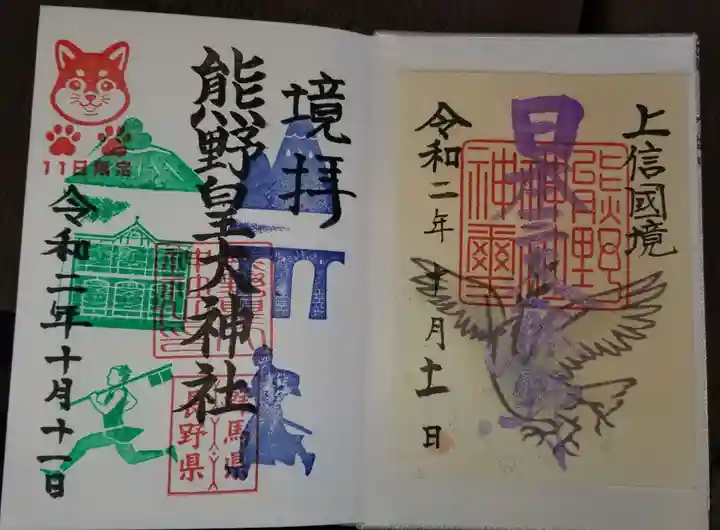 上信國境
熊野
神社
神璽
令和二年十月十一日
境拝
熊野皇大神社
群馬県
長野県
11日限定
令和二年十月十一日